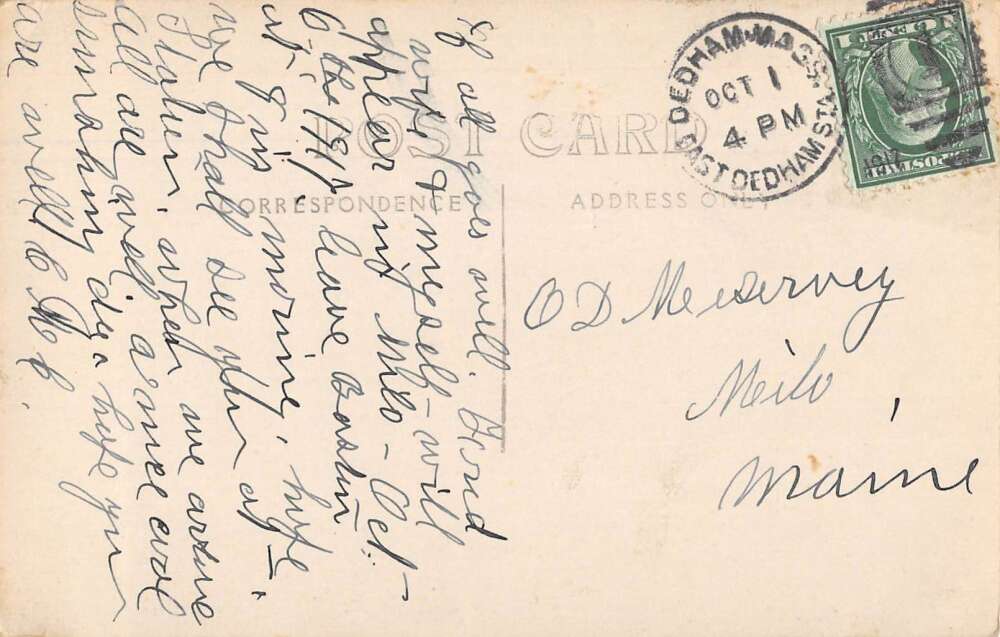 POST CARD
CORRESPONDENCE
ADDRESS ONLY
DEDHAM, MASS.
EAST DEDHAM STA.
OCT 1
4 PM
1917
If all goes well.
wife & myself - will
appear in Milo - Oct -
6 the 1917 leave Boston
at in morning, hope
we shall see you at
Station, when we arrive
All are well, a nice cool
day. hope you
are well
O D Meservey
Milo
Maine